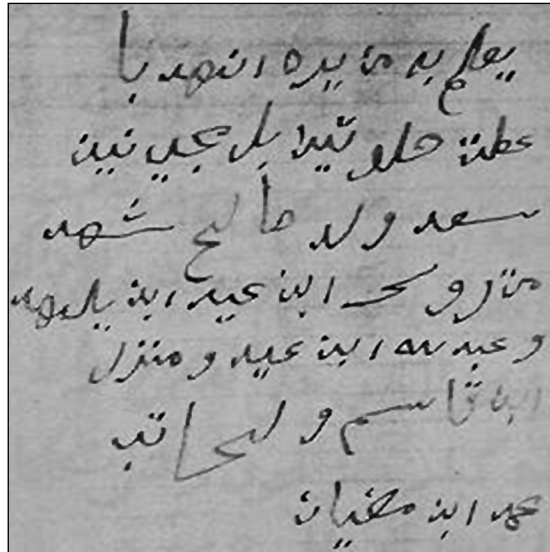 يعلم به من يره انهد با
عطت حلو تيدا بل مجيد نين
سعد ولد صالح شهد
متروك ابن عيد ابن بليهد
وعبد لله ابن عيد ومنزل
ابن قاسم ولكاتب
محمد ابن